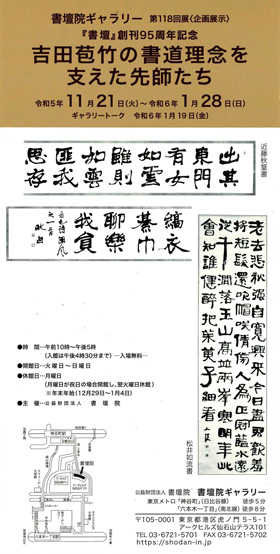 書壇院ギャラリー 第118回展〈企画展示〉
『書壇』創刊95周年記念
吉田苞竹の書道理念を
支えた先師たち
令和5年 11月21日(火)〜令和6年 1月28日(日)
ギャラリートーク 令和6年1月19日(金)
近藤秋篁書
出其
東門
有女
如雲
雖則
如雲
匪我
思存
縞衣
綦巾
聊樂
我員
老去悲秋強自寬興來今日盡君歡羞
將短髮還吹帽笑倩傍人為正冠藍水遠
從千澗落玉山高並兩峯寒明年此
會知誰健醉把茱萸子細看
松井如流書
●時 間…午前10時〜午後5時
(入館は午後4時30分まで) ―入場無料―
●開館日…火曜日〜日曜日
●休館日…月曜日
(月曜日が祝日の場合開館し、翌火曜日休館)
※年末年始(12月29日〜1月4日)
●主 催…公益財団法人 書 壇 院
書壇院
公益財団法人 書壇院 書壇院ギャラリー
東京メトロ「神谷町」(日比谷線) 徒歩5分
「六本木一丁目」(南北線) 徒歩8分
〒105-0001 東京都港区虎ノ門5-5-1
アークヒルズ仙石山テラス101
TEL 03-6721-5701 FAX 03-6721-5702
https://shodan-in.jp